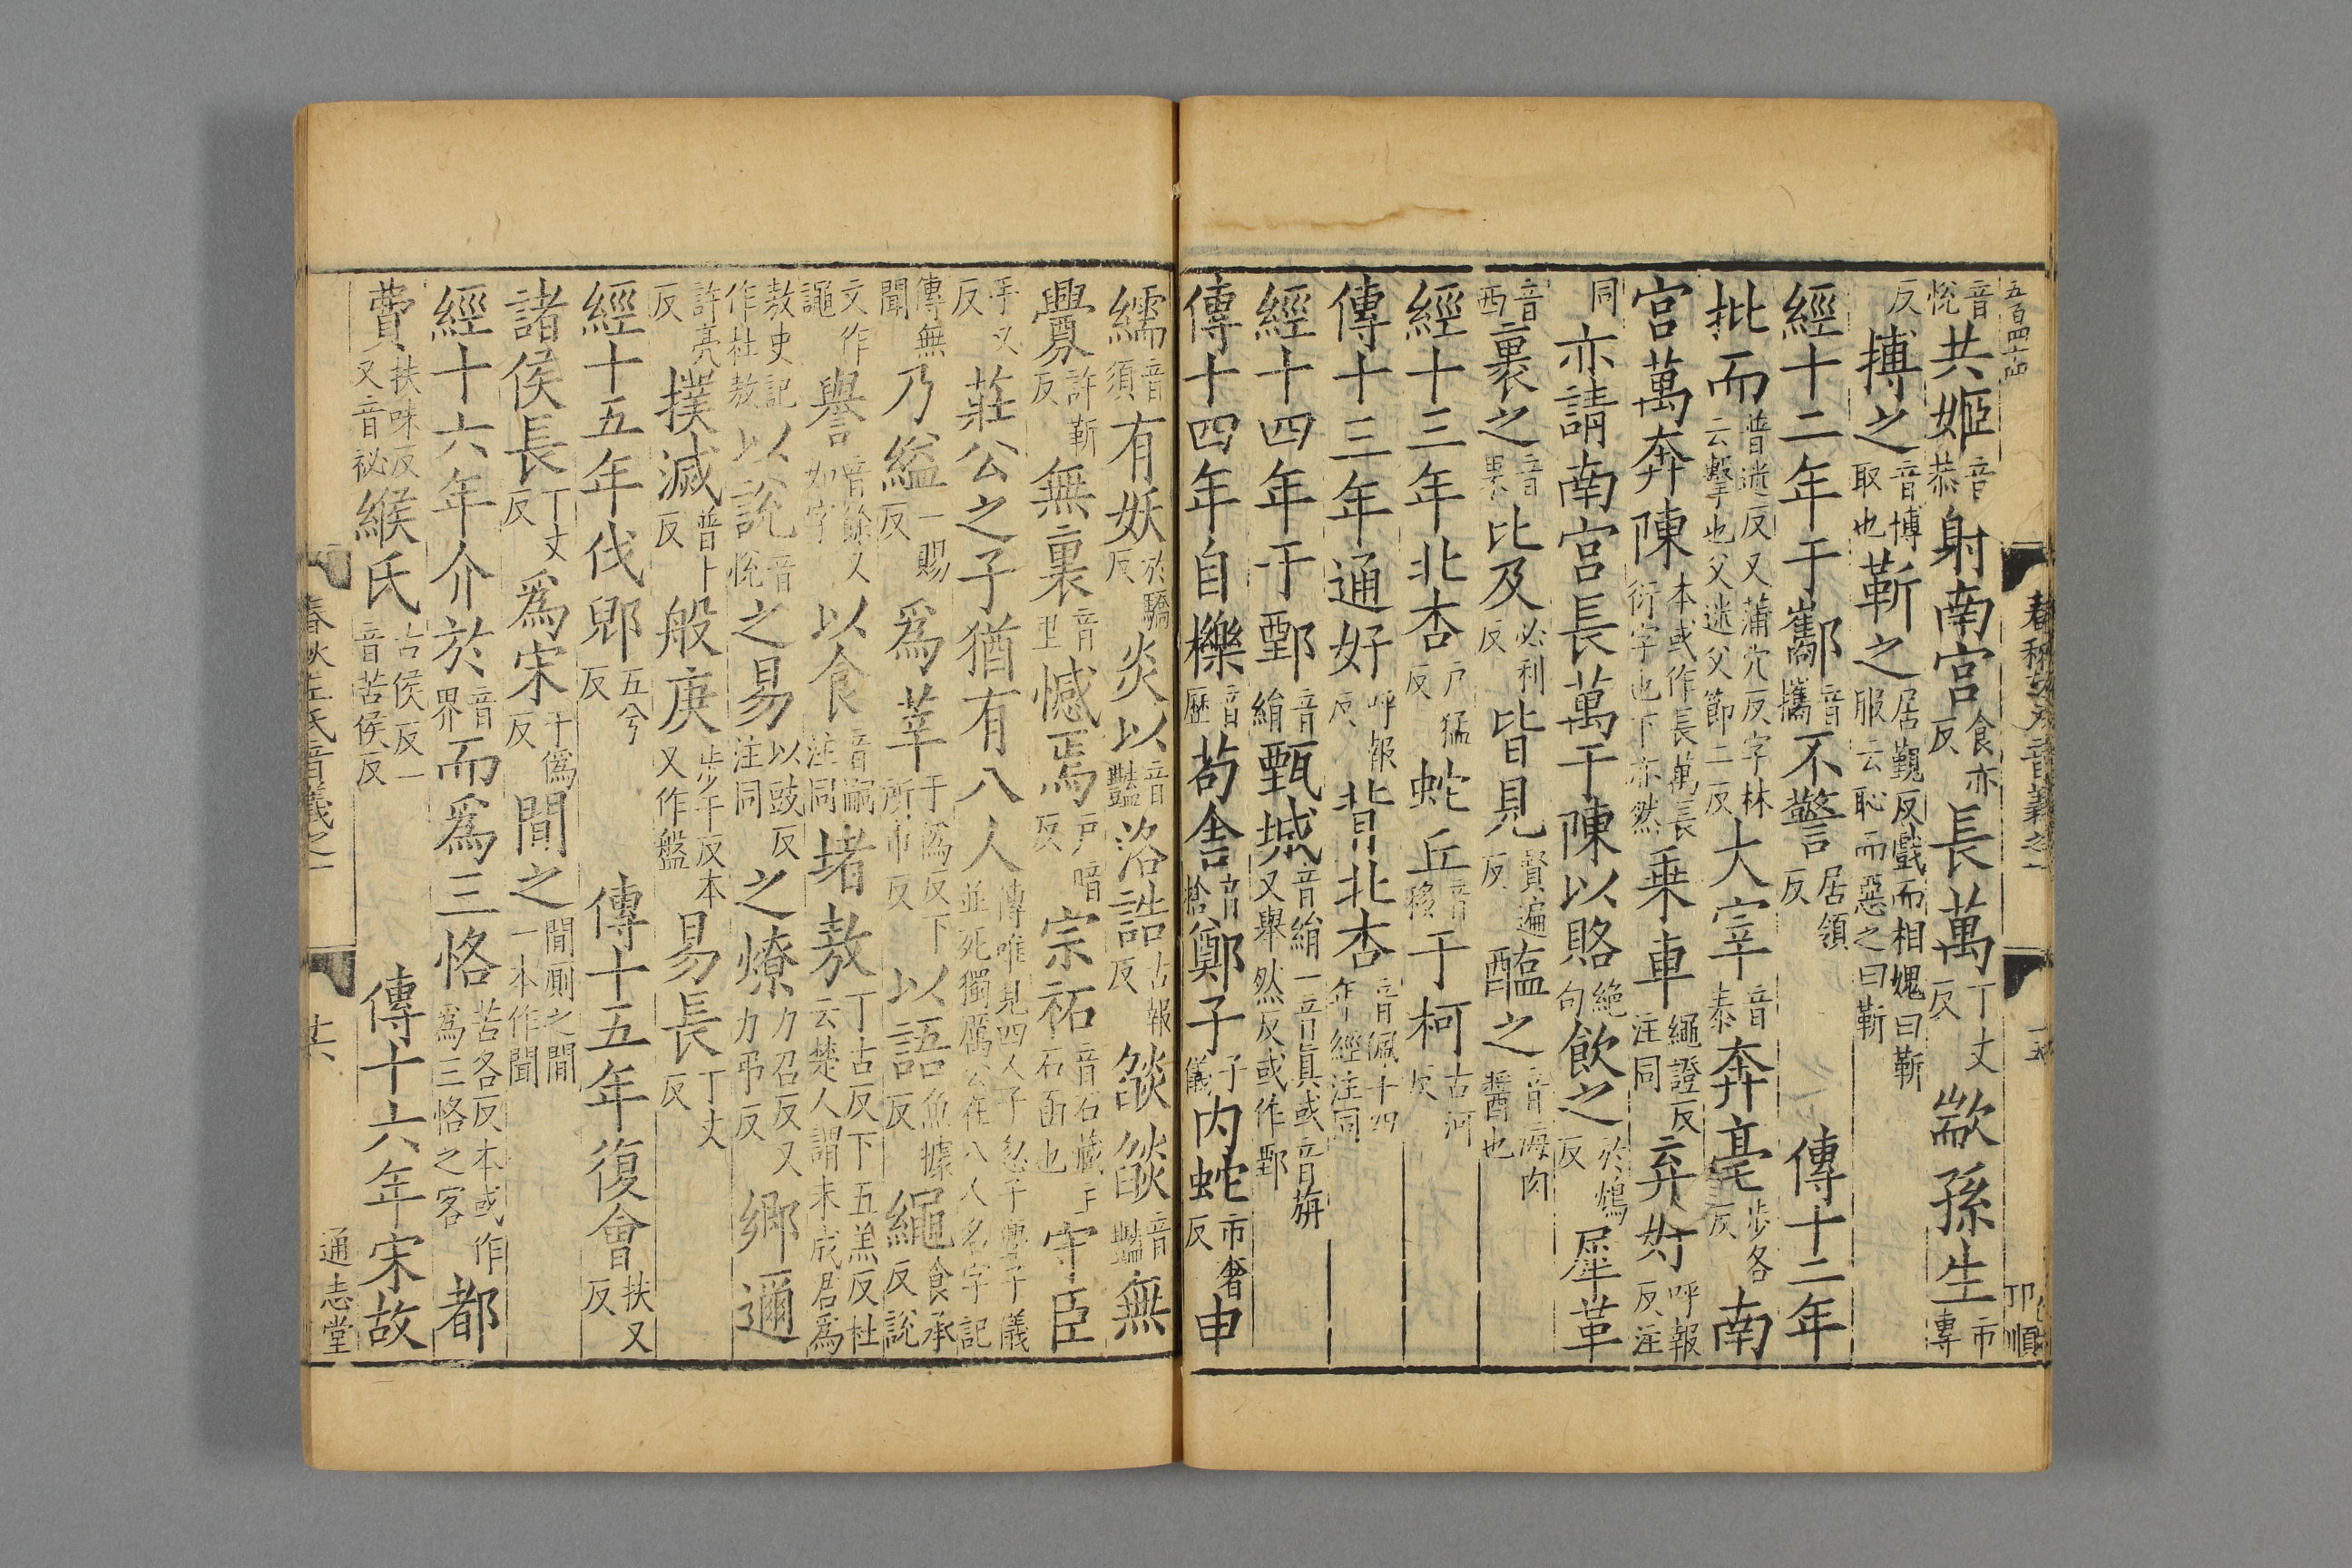 春秋左氏音義之一
十五
音悅共姬音恭射南宮食亦反長萬丁丈反歂孫生市專
反搏之音博取也靳之居覲反戲而相媿曰靳服云恥而惡之曰靳
經十二年于酅音攜不警居領反傳十二年
批而普迷反又蒲穴反字林云擊也父迷父節二反大宰音泰奔亳步各反南
宮萬奔陳本或作長萬長衍字也下亦然乗車繩證反注同弃好呼報反注
同亦請南宮長萬于陳以賂絶句飲之於鴆反犀革
音西裹之音果比及必利反皆見賢遍反醢之音海肉醬也
經十三年北杏戶猛反蛇丘音移于柯古河反
傳十三年通好呼報反背北杏音佩十四年經注同
經十四年于鄄音絹甄城音絹一音真或音旃又舉然反或作鄄
傳十四年自櫟音歷苟舍音捨鄭子子儀内蛇市奢反申
繻音須有妖於驕反炎以音豔洛誥古報反燄燄音豔無
釁許靳反無裏音里憾焉戶暗反宗祏音石藏主石函也守臣
手又反莊公之子猶有八人傳唯見四人子忽子亹子儀並死獨厲公在八人名字記
傳無聞乃縊一賜反爲莘于僞反下所巾反以語魚據反繩食承反說
文作譝譽音餘又如字以食音嗣注同堵敖丁古反下五羔反杜云楚人謂未成君爲
敖史記作杜敖以說音悅之易以豉反注同之燎力召反又力弔反鄉邇
許亮反撲滅普卜反般庚步干反本又作盤易長丁丈反
經十五年伐郳五兮反傳十五年復會扶又反
諸侯長丁丈反爲宋于僞反間之間廁之間一本作聞
經十六年介於音界而爲三恪苦各反本或作為三恪之客都
費扶味反又音祕緱氏古侯反一音苦侯反傳十六年宋故
春秋左氏音義之一
十六
通志堂